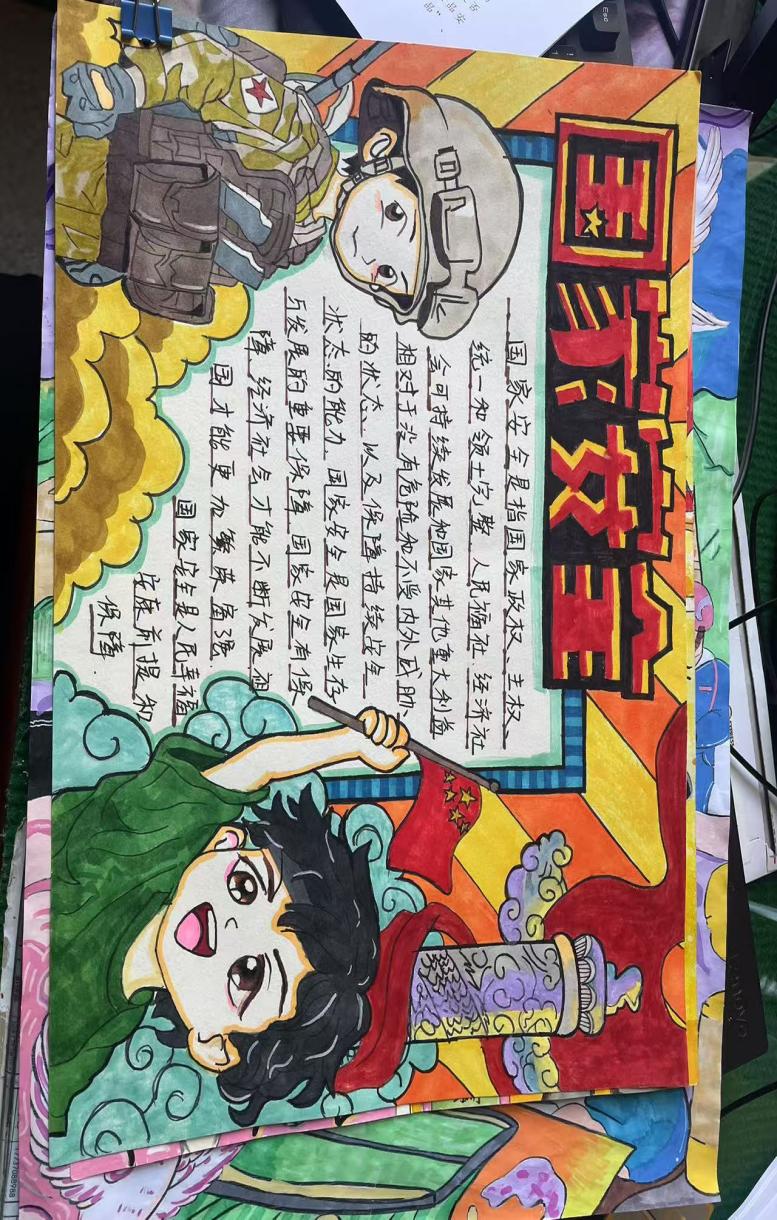 国家安全
国家安全是指国家政权、主权、
统一和领土完整、人民福祉、经济社
会可持续发展和国家其他重大利益
相对于没有危险和不受内外威胁
的状态、以及保障持续安全
状态的能力、国家安全是国家生存
与发展的重要保障、国家安全有保
障、经济社会才能不断发展、祖
国才能更加繁荣富强、
国家安全是人民幸福
安康前提和
保障.
Esc